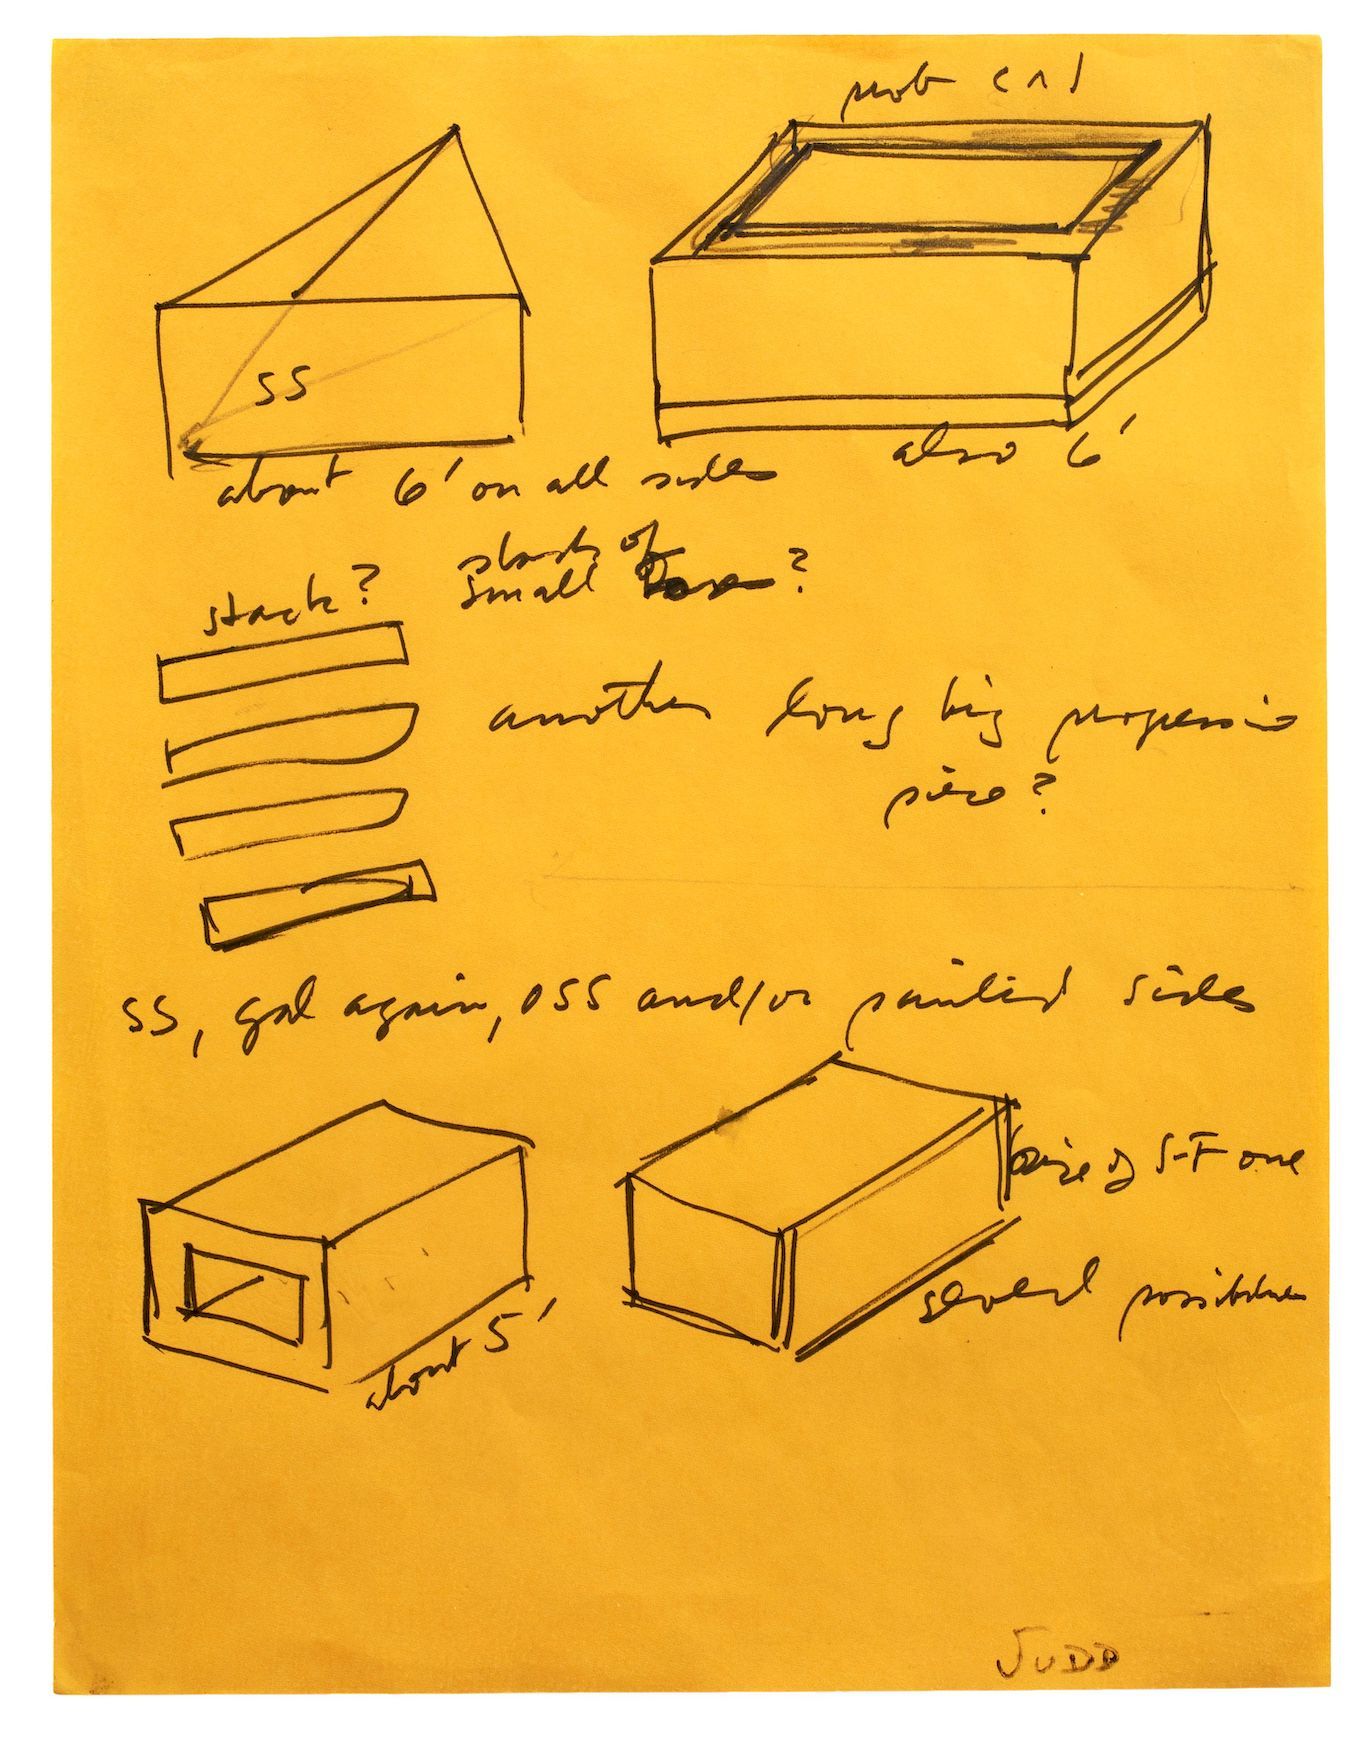 prob crl
SS
about 6' on all sides
also 6'
stack?
stack of
small
?
another long big progression
piece?
SS, gal again, or SS and/or painted sides
size of S-F one
about 5'
several possibilities
JUDD